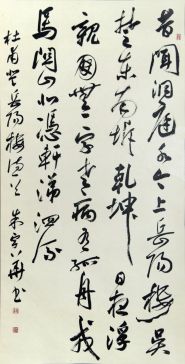 昔聞洞庭水今上岳陽樓吳
楚東南坼乾坤日夜浮
親朋無一字老病有孤舟戎
馬關山北憑軒涕泗流
杜甫登岳陽樓詩 朱 書